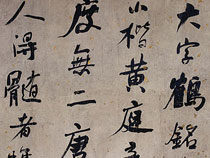 大字鶴銘
小楷黃庭
度無二唐
人得髓者